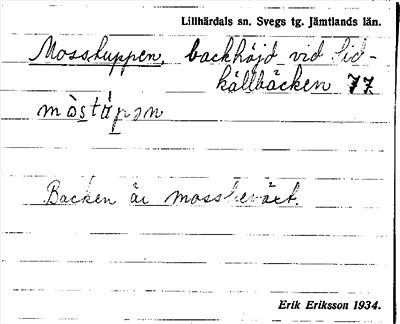 Lillhärdals sn. Svegs tg. Jämtlands län.
Mosskuppen, backhöjd vid Lid-
källbäcken 77
Backen är mossbeväxt.
Erik Eriksson 1934.